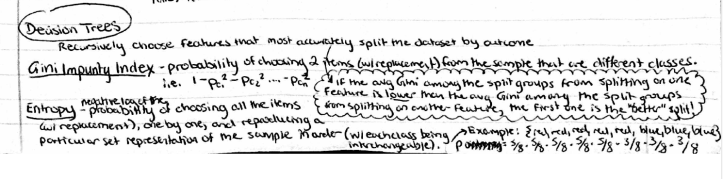 Decision Trees
Recursively choose features that most accurately split the dataset by outcome
Gini Impurity Index - probability of choosing 2 items (w/ replacement) from the sample that are different classes.
i.e. 1-Pc₁²-Pc₂²...-Pcₙ²
If the avg Gini among the split groups from splitting on one
feature is lower than the avg Gini among the split groups
from splitting on another feature, the first one is the "better" split!
Entropy - negative log of the probability of choosing all the items
(w/ replacement), one by one, and reproducing a
particular set representation of the sample in order (w/ each class being
interchangeable).
Example: {red, red, red, red, red, blue, blue, blue}
P = 5/8 · 5/8 · 5/8 · 5/8 · 5/8 · 3/8 · 3/8 · 3/8